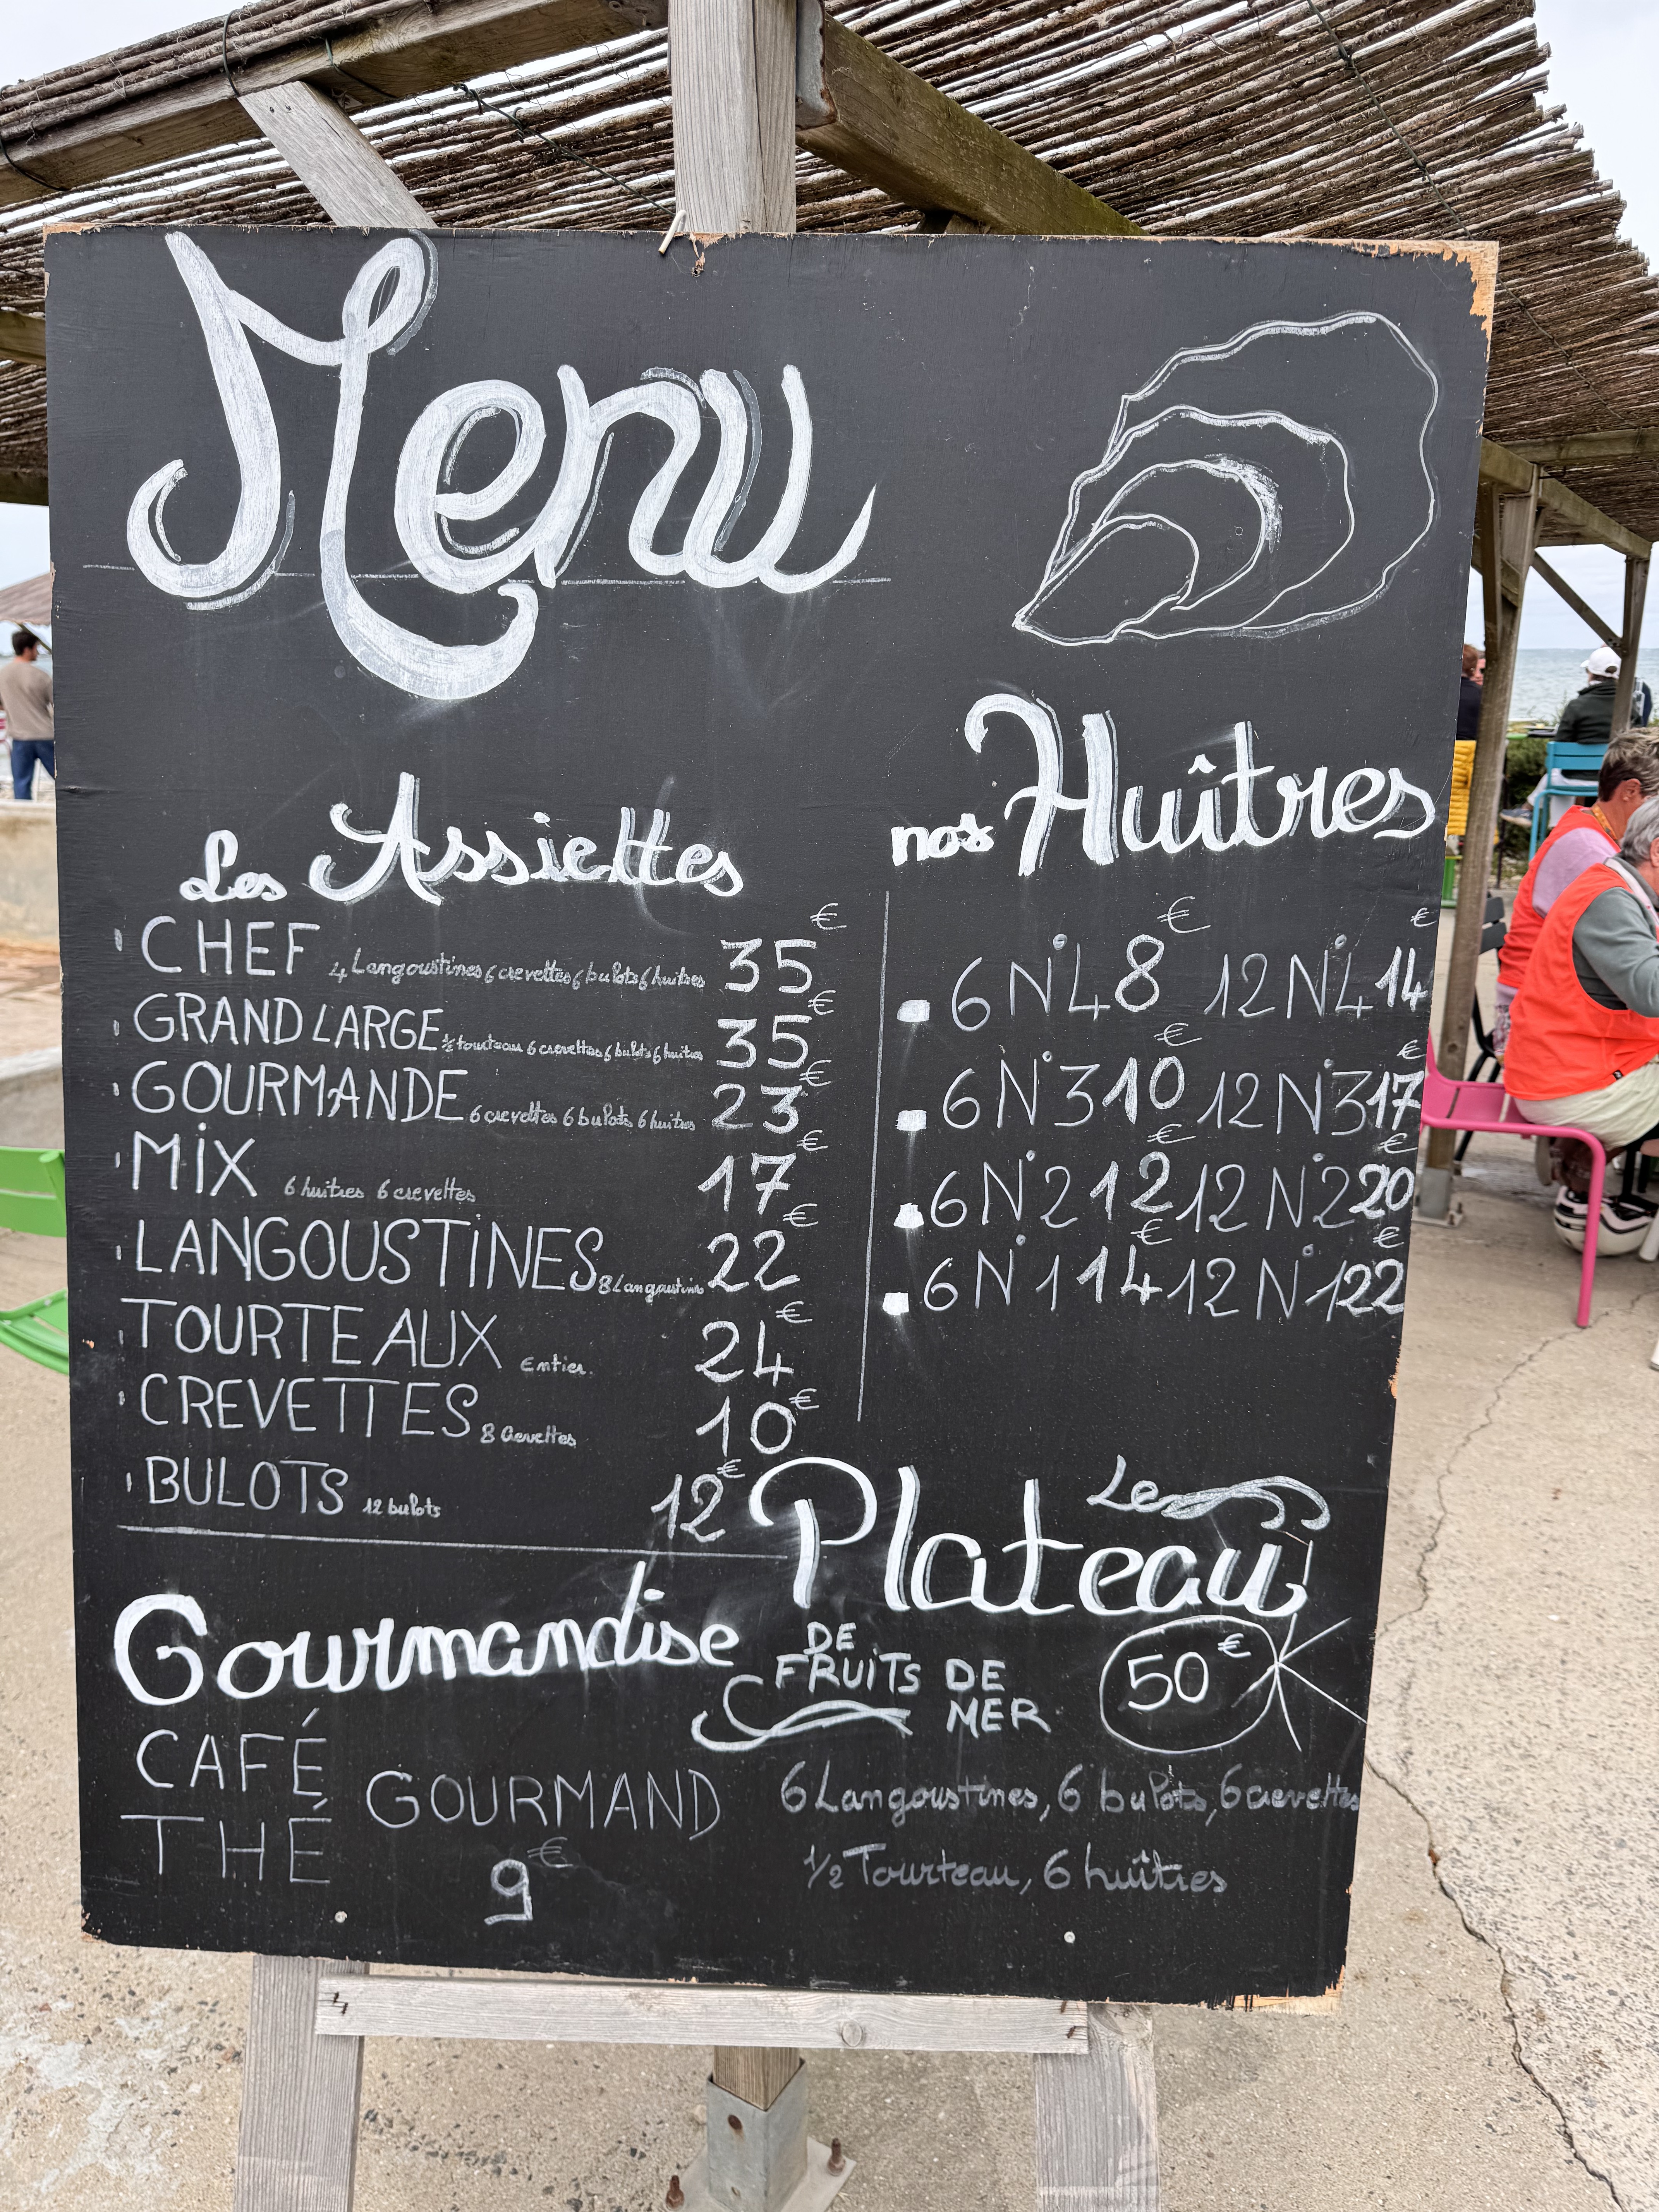 Menu
Les Assiettes
CHEF 4 Langoustines 6 crevettes 6 bulots 6 huitres 35€
GRAND LARGE ½ tourteau 6 crevettes 6 bulots 6 huitres 35€
GOURMANDE 6 crevettes 6 bulots 6 huitres 23€
MIX 6 huitres 6 crevettes 17€
LANGOUSTINES 8 Langoustines 22€
TOURTEAUX Entier. 24€
CREVETTES 8 Crevettes 10€
BULOTS 12 bulots 12€
nos Huîtres
6 N°4 8€ 12 N°4 14€
6 N°3 10€ 12 N°3 17€
6 N°2 12€ 12 N°2 20€
6 N°1 14€ 12 N°1 22€
Gourmandise
CAFÉ
THÉ
GOURMAND
9€
Le
Plateau
DE
FRUITS DE
MER
50€
6 Langoustines, 6 bulots, 6 crevettes
1/2 Tourteau, 6 huîtres